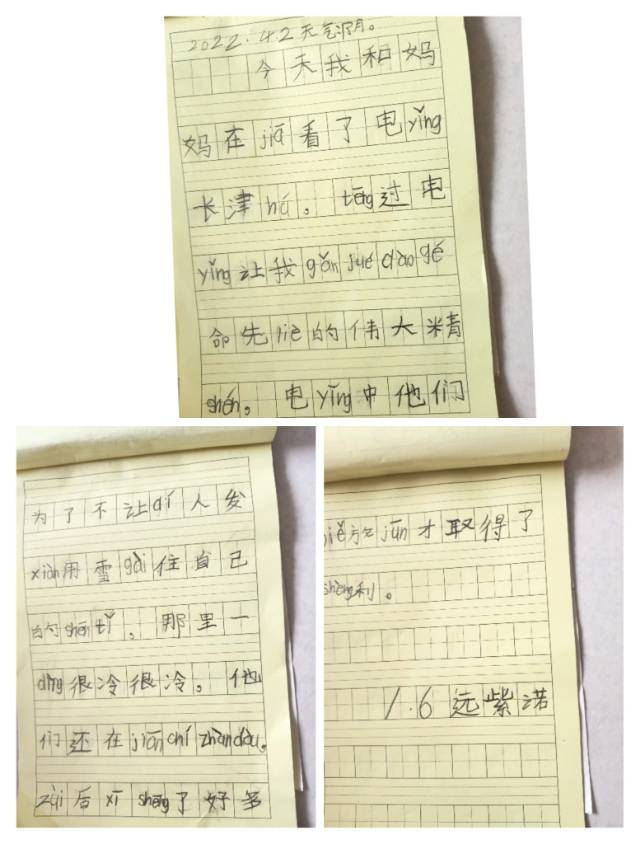 2022.4.2天气晴。
今天我和妈
妈在jiā看了电yǐng
长津hú。tōng过电
yǐng让我gǎn jué dào gé
命先liè的伟大精
shén。电yǐng中他们
为了不让dí人发
xiàn用雪gài住自己
的shēn tǐ，那里一
dìng很冷很冷。他
们还在jiān chí zhàn dòu。
zuì后xī shēng了好多
jiě放jūn才取得了
shèng利。
1.6远紫诺